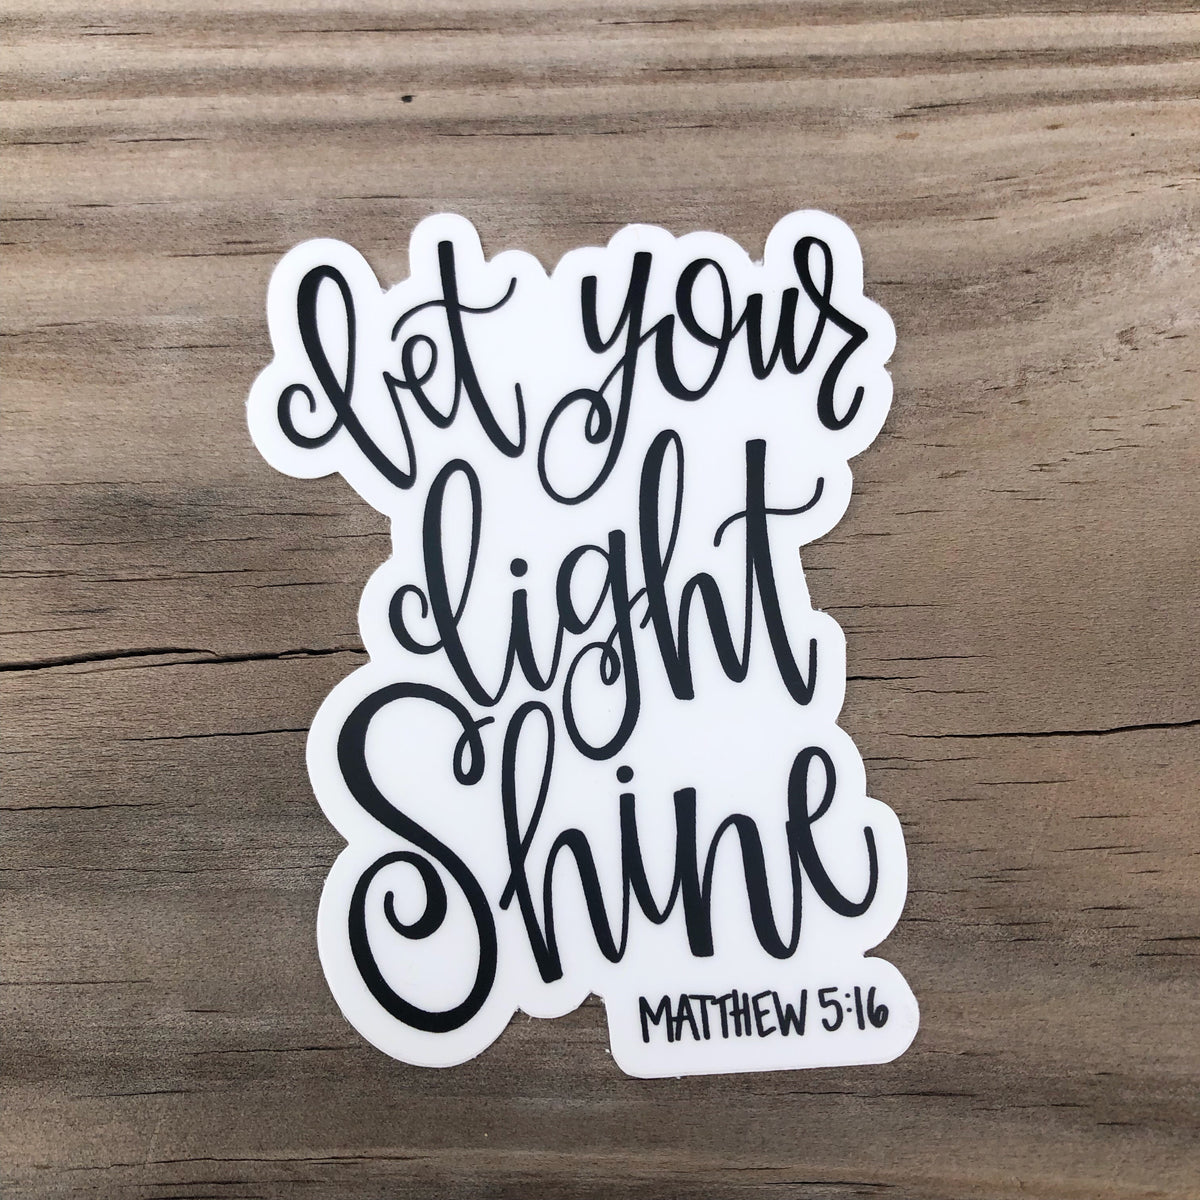 Let your
Light
Shine
MATTHEW 5:16